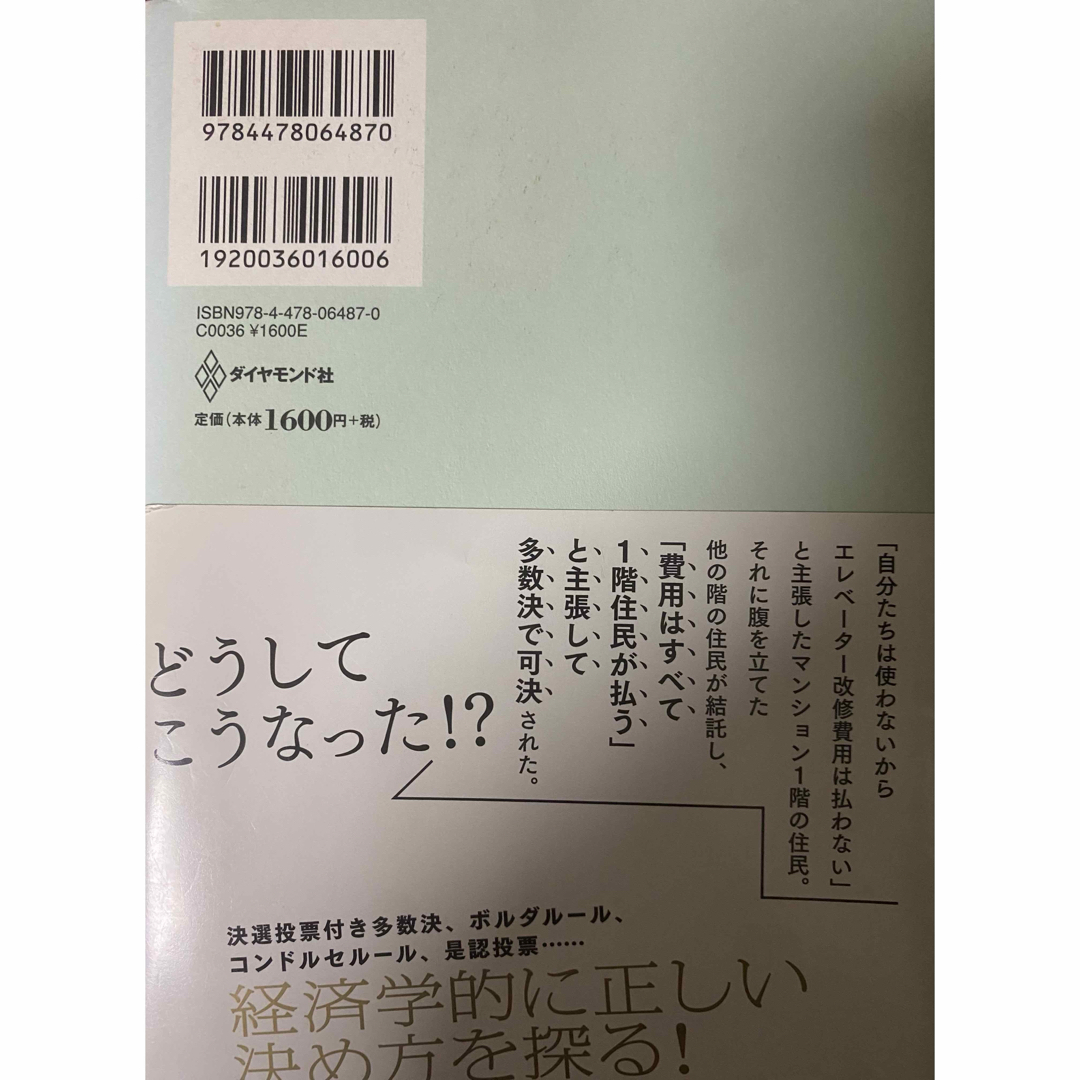 9784478064870
1920036016006
ISBN978-4-478-06487-0
C0036 ¥1600E
ダイヤモンド社
定価(本体1600円+税)
「自分たちは使わないから
エレベーター改修費用は払わない」
と主張したマンション1階の住民。
それに腹を立てた
他の階の住民が結託し、
「費用はすべて
1階住民が払う」
と主張して
多数決で可決された。
どうして
こうなった!?
決選投票付き多数決、ボルダルール、
コンドルセルール、是認投票……
経済学的に正しい
決め方を探る!